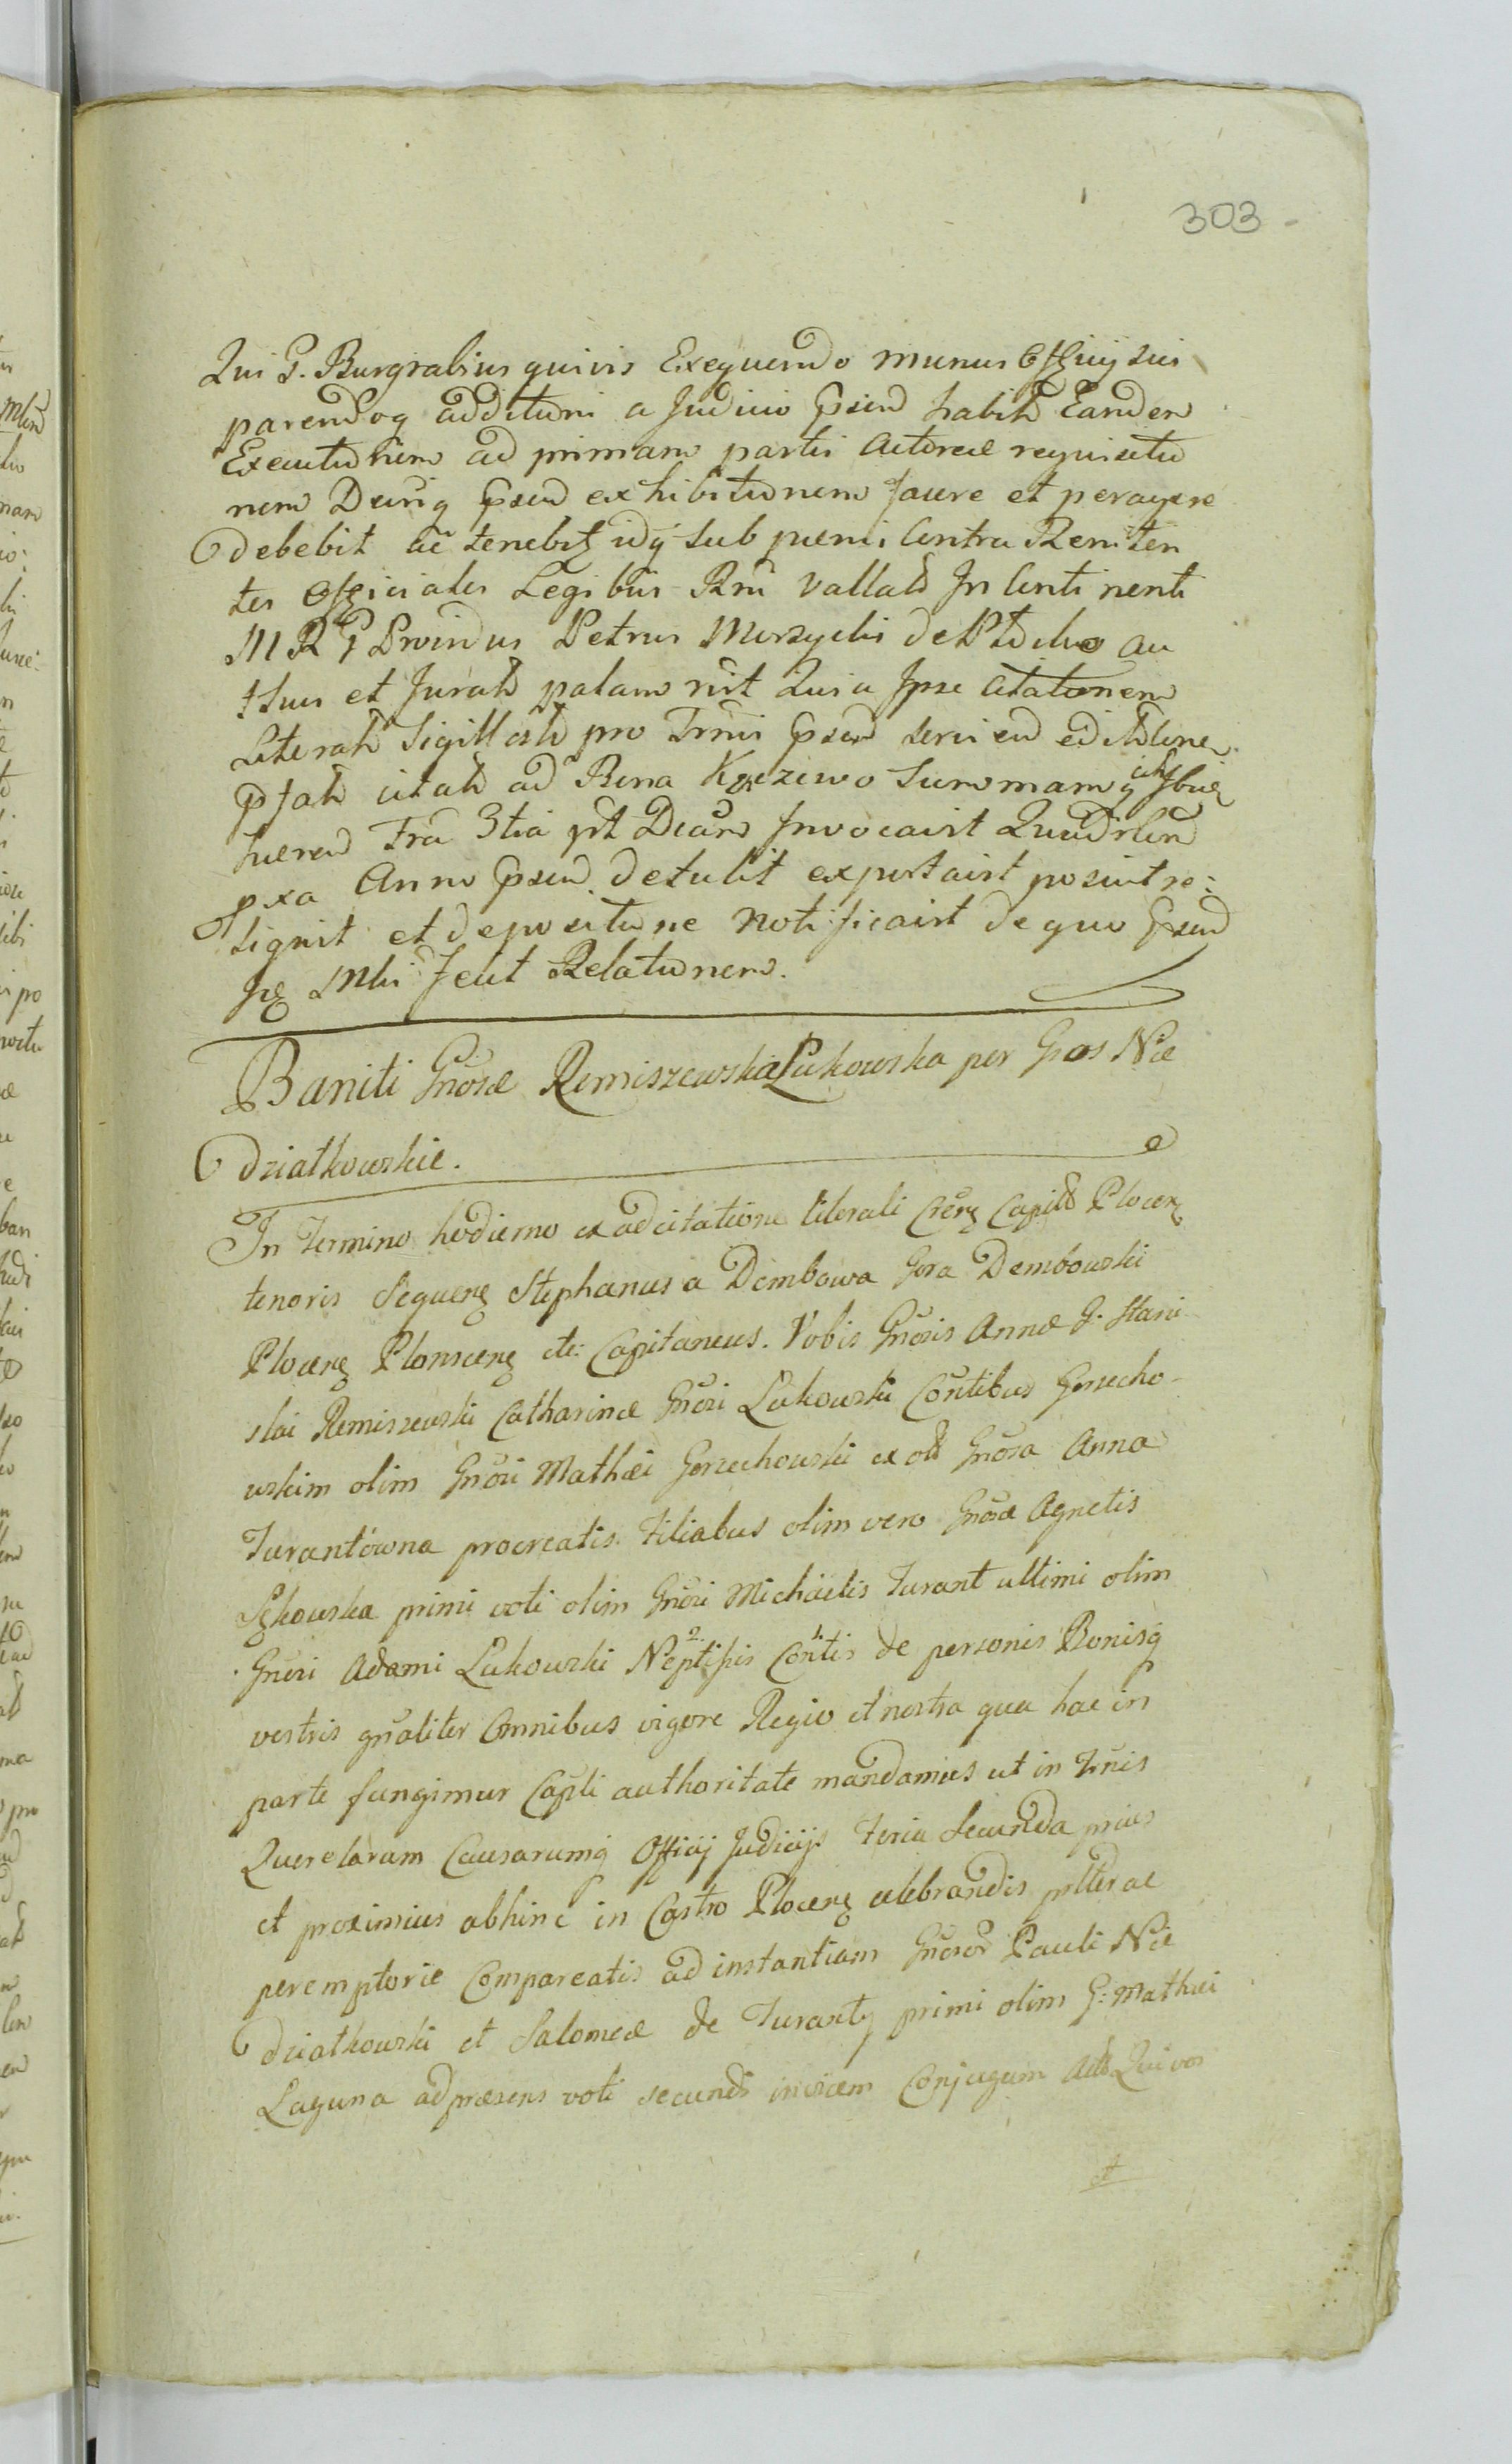 303
Qui G. Burgrabius quivis Exequendo munus Officij sui
parendoq additioni a Judicio psend habith Eandem
Executionem ad primam partis Actoreæ requisitio
nem Decriq psend exhibitionem facere et peragere
debebit ac tenebit idq sub pænis Contra Reniten
tes Officiales Legibus Rni Vallatis In Continenti
M R G Providus Petrus
et Jurath palam rect Quia Ipse Citationem
Literath Sigillath pro Trnis psend
pfath citath ad Bona Summam q
fueren Fra 3tia pt Invocavit
pxa Anno psend detulit exportavit posuit re:
liquit et de positione notificavit de quo psend
Mlis fecit Relationem.
Baniti Gnosæ Remiszewska Lukowska per Gnos Nie
działkowskie.
In Termino hodierno ex adcitatione literali Capitlis Plocen
tenoris Sequen Stephanus a Dembowa Gora Dembowski
Plocen Plonscen etc: Capitaneus. Vobis Gnosis Annæ G. Stani
slai Remiszewski Catharinæ Gnosi Lukowski Contibus Gorzecho
wskim olim Gnosi Mathæi Gorzechowski ex olim Gnosa Anna
Turantówna procreatis filiabus olim vero Gnosæ Agnetis
primi voti olim Gnosi Michaelis Turant ultimi olim
Gnosi Adami Lukowski Neptibus 2. Contis 1. de personis Bonisq
vestris gnaliter Omnibus vigore Regio et nostra qua hac in
parte fungimur Capli authoritate mandamus ut in Trnis
Querelarum Causarumq Officij Judicijs Feria Secunda prius
et proximius abhinc in Castro Plocen celebrandis pltter ac
peremptorie Compareatis ad instantiam Gnosor Pauli Nie
dziatkowski et Salomeæ de Turanty primi olim G: Mathæi
Laguna ad præsens voti secundi invicem Conjugum Qui vos
et